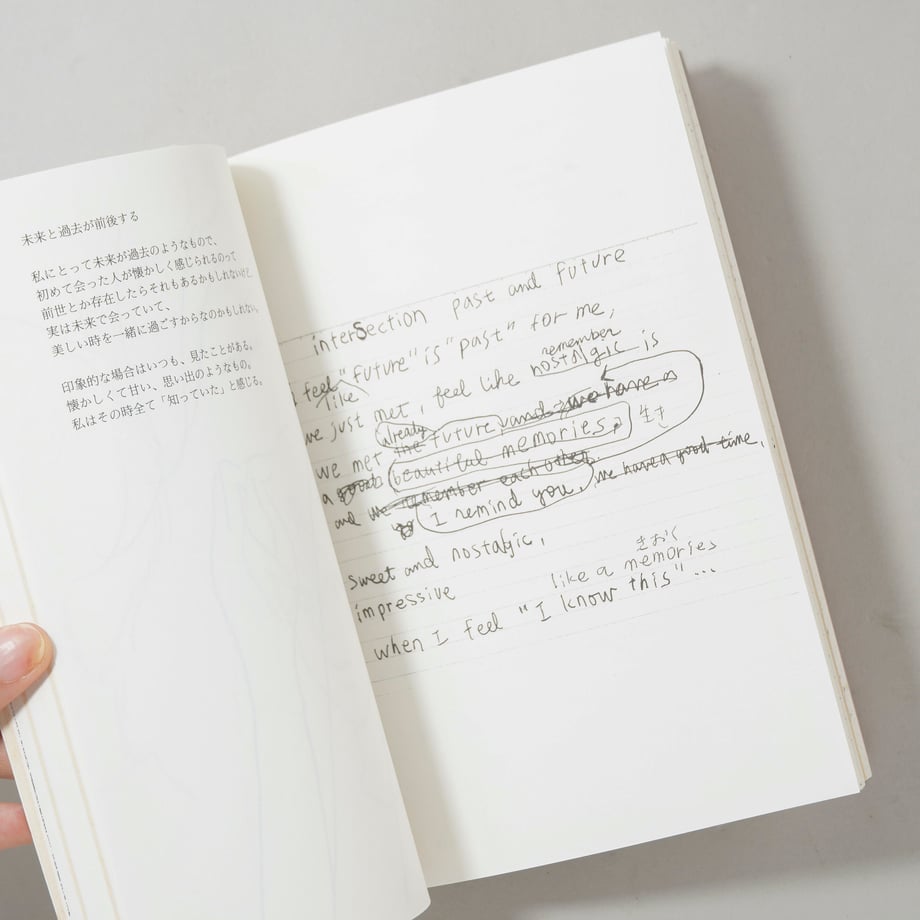 未来と過去が前後する
私にとって未来が過去のようなもので、
初めて会った人が懐かしく感じられるのって
前世とか存在したらそれもあるかもしれないけど、
実は未来で会っていて、
美しい時を一緒に過ごすからなのかもしれない。
印象的な場合はいつも、見たことがある。
懐かしくて甘い、思い出のようなもの。
私はその時全て「知っていた」と感じる。
interSection past and future
feel "future" is "past" for me,
like remember
we just met, feel like nostalgic is
already
we met the future and we have a
a good beautiful memories. 生き
and we remember each other we have a good time,
I remind you.
sweet and nostalgic,
きおく
impressive like a memories
when I feel "I know this" ...